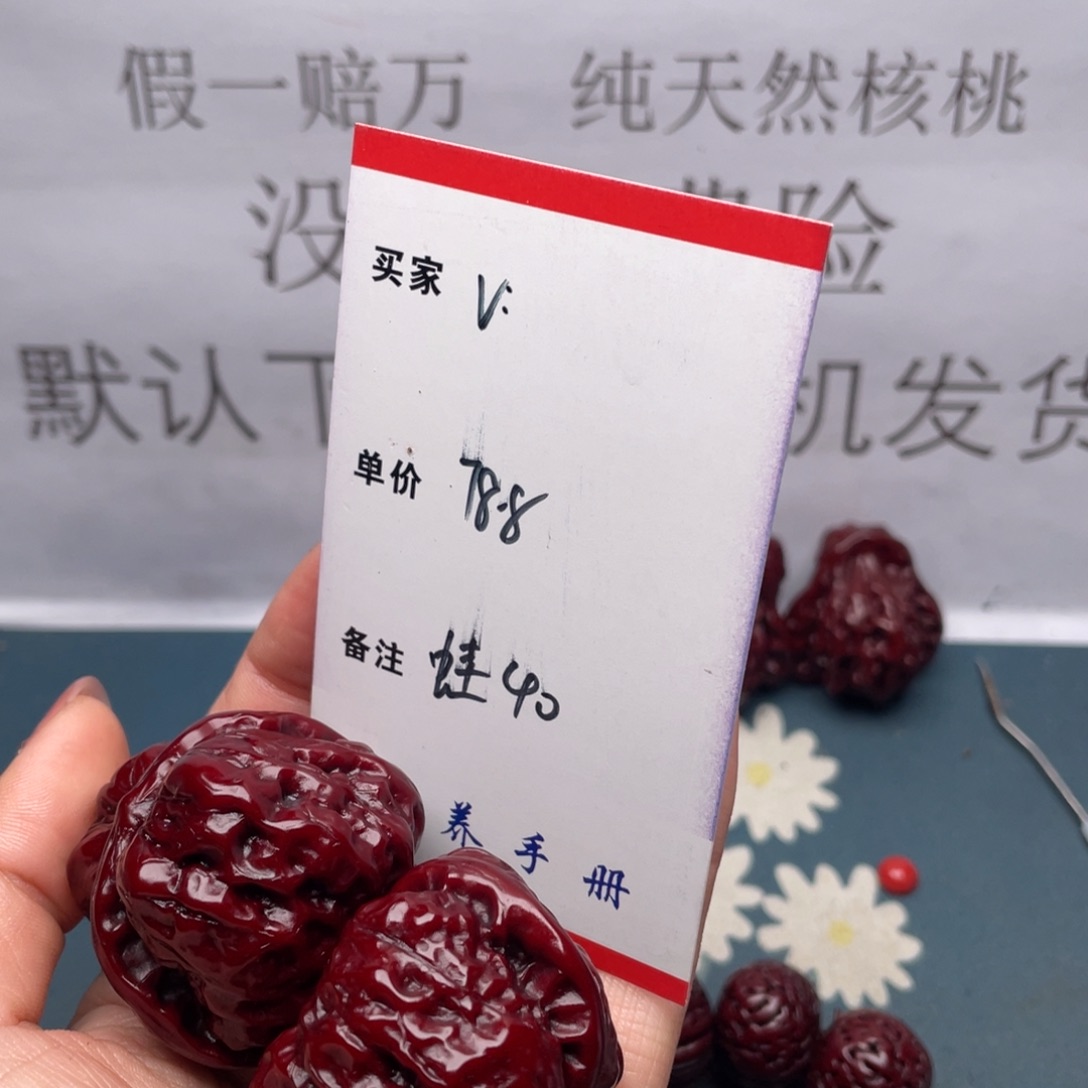 假一赔万 纯天然核桃
没 险
默认 机发货
买家 V:
单价
备注 蛙40
养手册